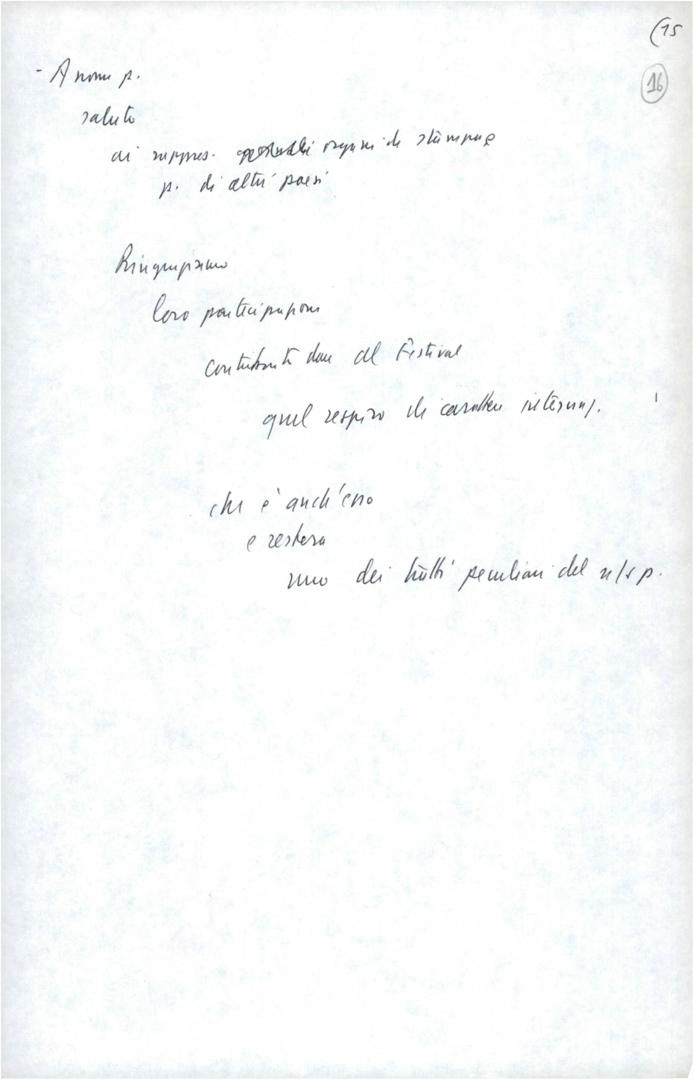 (15
16
- A nome p.
saluto
ai rappres. organi di stampa e
p. di altri paesi
Ringraziamo
loro partecipazione
contributo dare al Festival
quel respiro di carattere internaz.
che è anch'esso
e resterà
uno dei tratti peculiari del n/s p.